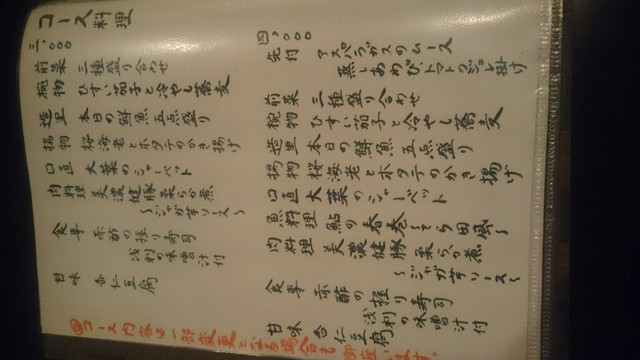 コース料理
三、〇〇〇
前菜 三種盛り合わせ
椀物 ひすい茄子と冷やし蕎麦
造里 本日の鮮魚五点盛り
揚物 桜海老とホタテのかき揚げ
口直 大葉のシャーベット
肉料理 美濃健豚柔らか煮
〜ジャガ芋ソース〜
食事 赤酢の握り寿司
浅利の味噌汁付
甘味 杏仁豆腐
四、〇〇〇
先付 アスパラガスのムース
蒸しあわび、トマトのジュレ掛け
前菜 三種盛り合わせ
椀物 ひすい茄子と冷やし蕎麦
造里 本日の鮮魚五点盛り
揚物 桜海老とホタテのかき揚げ
口直 大葉のシャーベット
魚料理 鮎の春巻
肉料理 美濃健豚柔らか煮
〜ジャガ芋ソース〜
食事 赤酢の握り寿司
浅利の味噌汁付
甘味 杏仁豆腐
コース内容は一部変更となる場合も御座います。